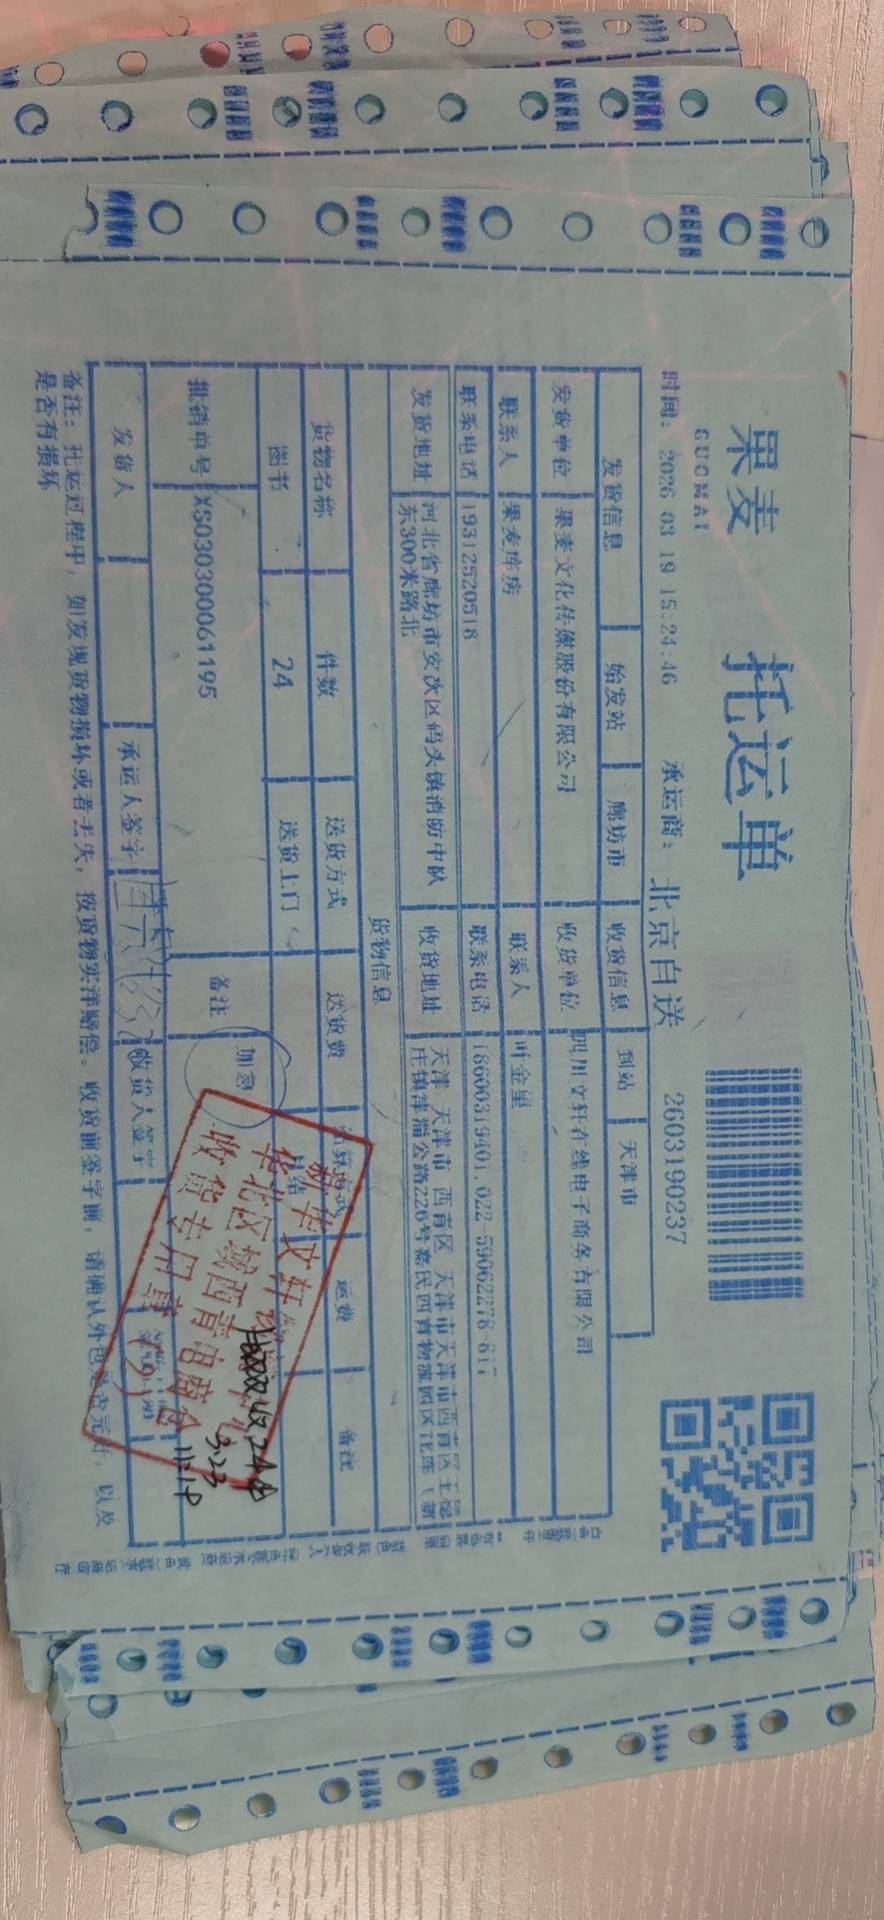 果麦
GUOMAI
托运单
时间: 2026 03 19 15:24:46 承运商: 北京自送 2603190237
发货信息 始发站 廊坊市 收货信息 到站 天津市
发货单位 果麦文化传媒股份有限公司 收货单位 四川文轩在线电子商务有限公司
联系人 果麦库房 联系人 叶金星
联系电话 19312520518 联系电话 18600319401,022-59662278-817
发货地址 河北省廊坊市安次区码头镇消防中队
东300米路北
收货地址 天津 天津市 西青区 天津市天津市西青区王稳
庄镇津淄公路226号嘉民西青物流园区
货物信息
货物名称 件数 送货方式 送货费 结算方式 运费 备注
图书 24 送货上门 月结
批销单号 XS030300061195 备注 加急
发货人 承运人签字 收货人签字
备注: 托运过程中, 如发现货物损坏或者丢失, 按货物实洋赔偿。收货前签字前, 请确认外包是否完好, 以及
是否有损坏
新华文轩
华北区域西青电商仓
收货专用章
(2)
3.23
11:18